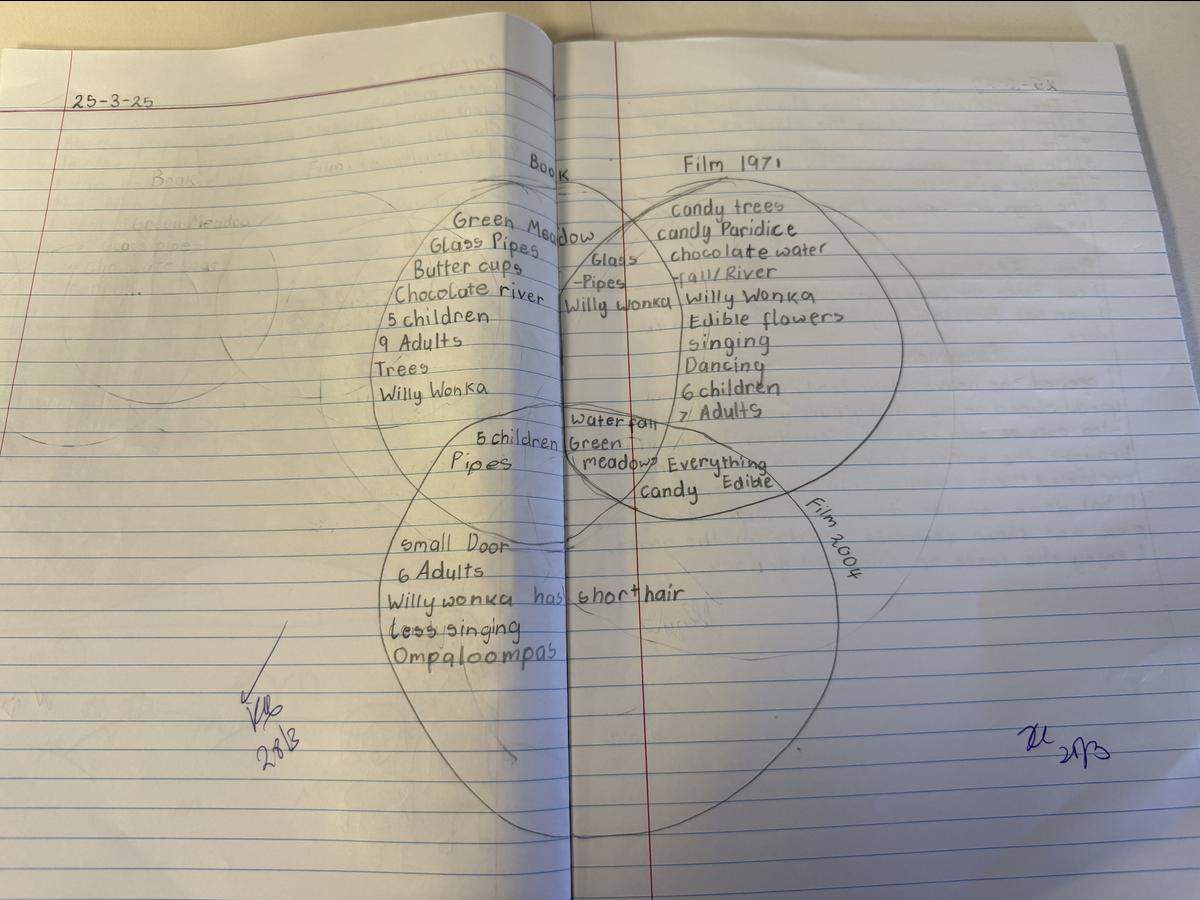 25-3-25
Book
Green Meadow
Glass Pipes
Butter cups
Chocolate river
5 children
9 Adults
Trees
Willy Wonka
Glass
-Pipes
Willy Wonka
Film 1971
candy trees
candy Paridice
chocolate water
-fall/River
Willy Wonka
Edible flowers
singing
Dancing
6 children
7 Adults
5 children
Pipes
waterfall
Green
meadows
Everything
candy Edible
Film 2004
small Door
6 Adults
Willy wonka has short hair
less singing
Ompaloompas
28/3